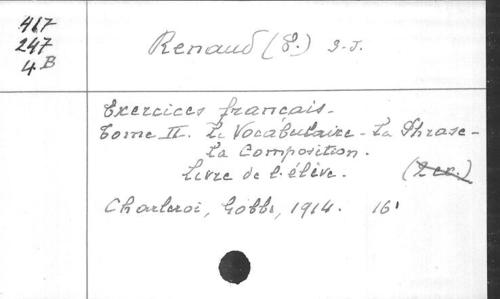 417
247
4 B
Renaud (E.) S.J.
Exercices français-
Tome II. Le Vocabulaire - La Phrase -
La Composition.
Livre de l'élève. (2 ex.)
Charleroi, Gobbe, 1914. 16'